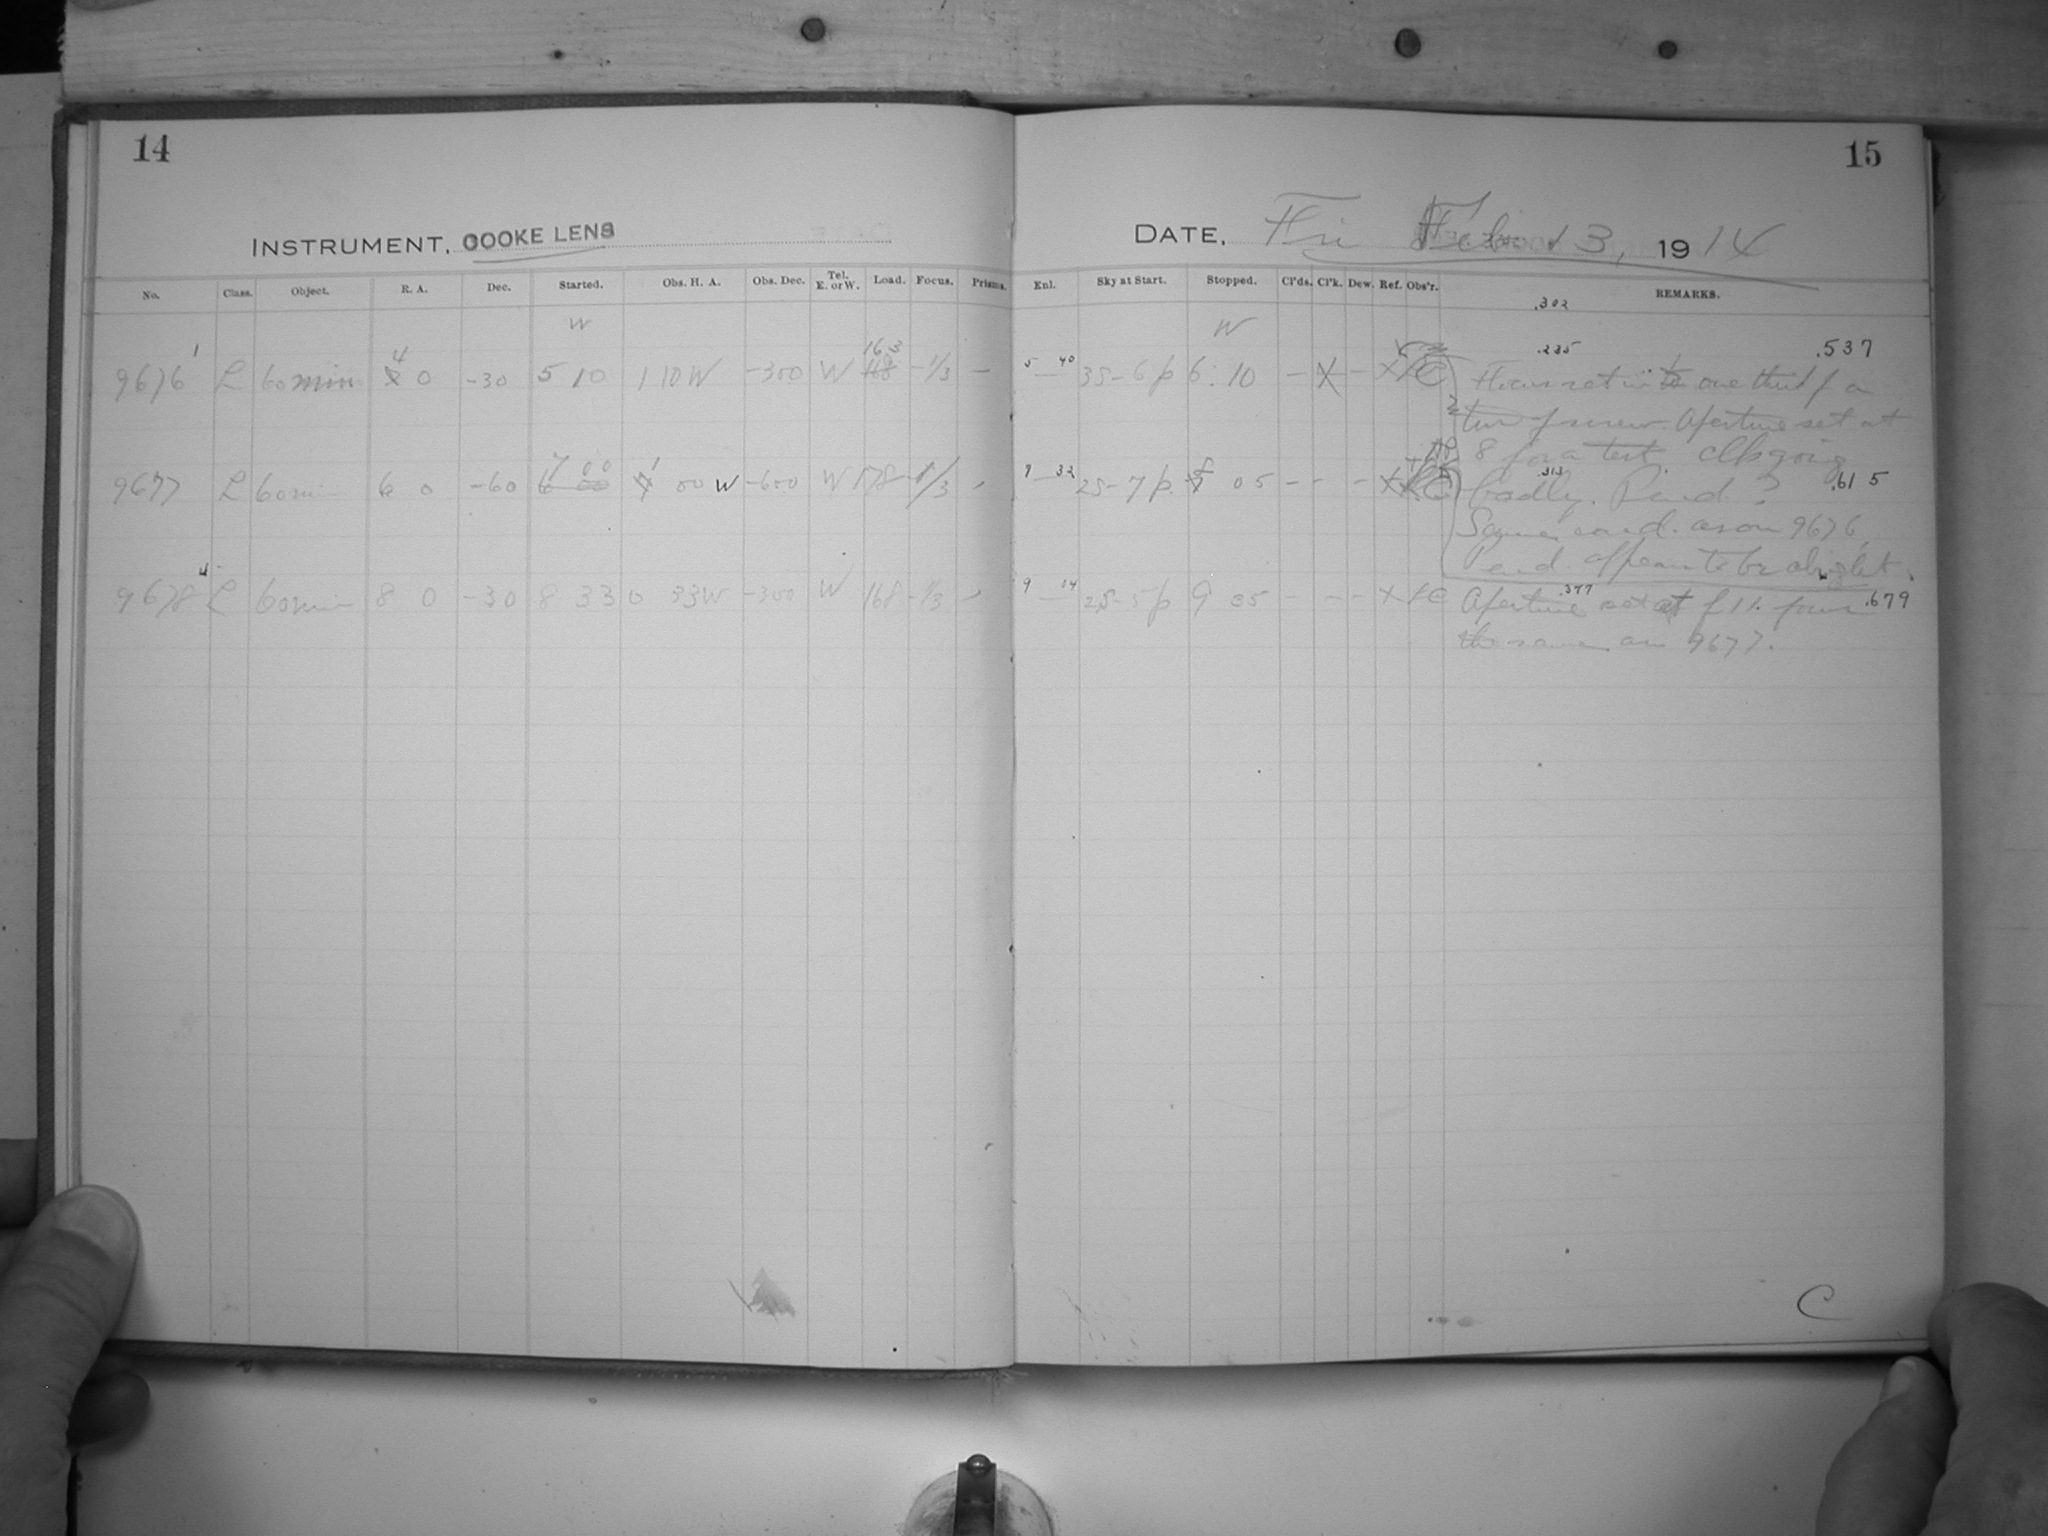 14
15
INSTRUMENT, COOKE LENS
DATE, Fri Feb 13, 1914
No. Class. Object. R. A. Dec. Started. Obs. H. A. Obs. Dec. Tel. E. or W. Load. Focus. Prisms. Enl. Sky at Start. Stopped. Cl'ds. Cl'k. Dew. Ref. Obs'r. REMARKS.
.302
W W
1 4 16 .235 .537
9676 L 60 min 0 -30 5 10 1 10 W -300 W -1/3 — 5 — 40 35-6p 6:10 — X — X Focus set in to one third of a
turn of screw. Aperture set at
8 for a test. Clk going
7 00 1 8 .313 .615
9677 L 60 min 6 0 -60 00 W -600 W 178 -1/3 - 7 — 32 25-7p. 05 - - - badly. Pend ?
Same cond. as on 9676
Pend. appears to be alright.
4 .377 .679
9678 L 60 min 8 0 -30 8 33 0 33W -300 W 168 -1/3 - 9 — 04 25-5p 9 35 - - - X Aperture set at f 11. focus
the same as 9677.
C